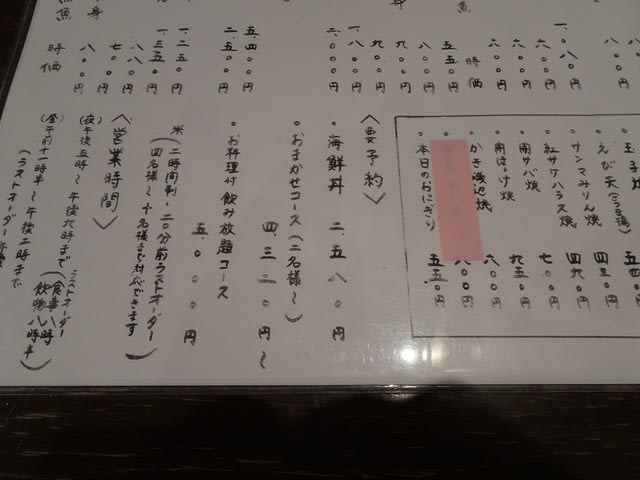 身
魚
一、〇八〇円
六〇〇円
六〇〇円
時価
五五〇円
八〇〇円
九〇〇円
九〇〇円
一、八〇〇円
二、〇〇〇円
五、四〇〇円
二、五〇〇円
一、二五〇円
一、三五〇円
一、八八〇円
七〇〇円
八〇〇円
時価
えび天
四三〇円
サンマみりん焼
四九〇円
紅サケハラス焼
七〇〇円
開サバ焼
九五〇円
開ほっけ焼
六〇〇円
かき磯辺焼
八〇〇円
本日のおにぎり
五五〇円
〈要予約〉
海鮮丼 二、五八〇円
おまかせコース(二名様〜)
四、三二〇円〜
お料理付飲み放題コース
五、〇〇〇円
米(二時間制・二〇分前ラストオーダー
四名様〜十名様まで対応できます)
〈営業時間〉
(夜)午後五時〜午後九時まで
ラストオーダー
(食事八時
飲物八時半)
(昼)午前十一時半〜午後二時まで
(ラストオーダー